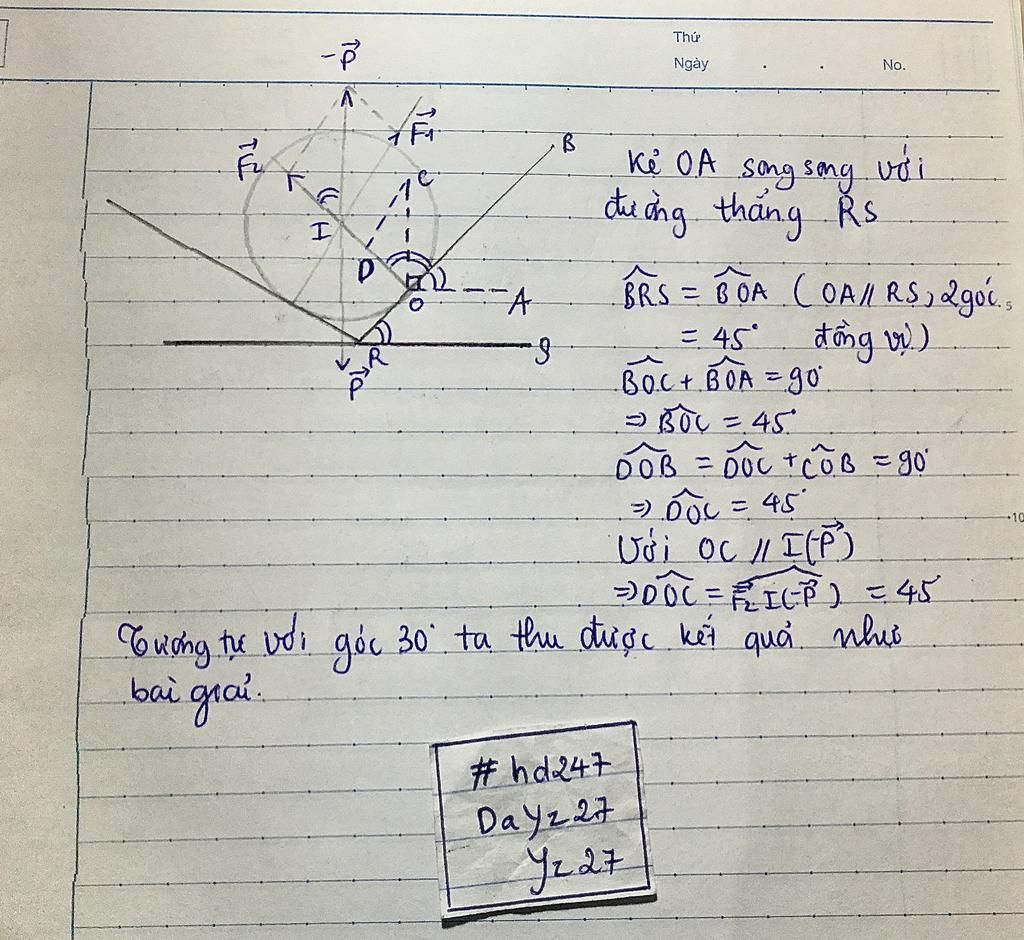 Thứ
Ngày . . No.
-P⃗
F⃗1
F⃗2
C
B
I
D
O
A
R
S
P⃗
Kẻ OA song song với
đường thẳng RS
B̂RS = B̂OA (OA // RS, 2 góc
= 45° đồng vị)
B̂OC + B̂OA = 90°
⇒ B̂OC = 45°
D̂OB = D̂OC + ĈOB = 90°
⇒ D̂OC = 45°
Với OC // I(-P⃗)
⇒ D̂OC = F⃗2I(-P⃗) = 45°
Tương tự với góc 30° ta thu được kết quả như
bài giải.
5
10
# hd247
DaYz27
Yz27